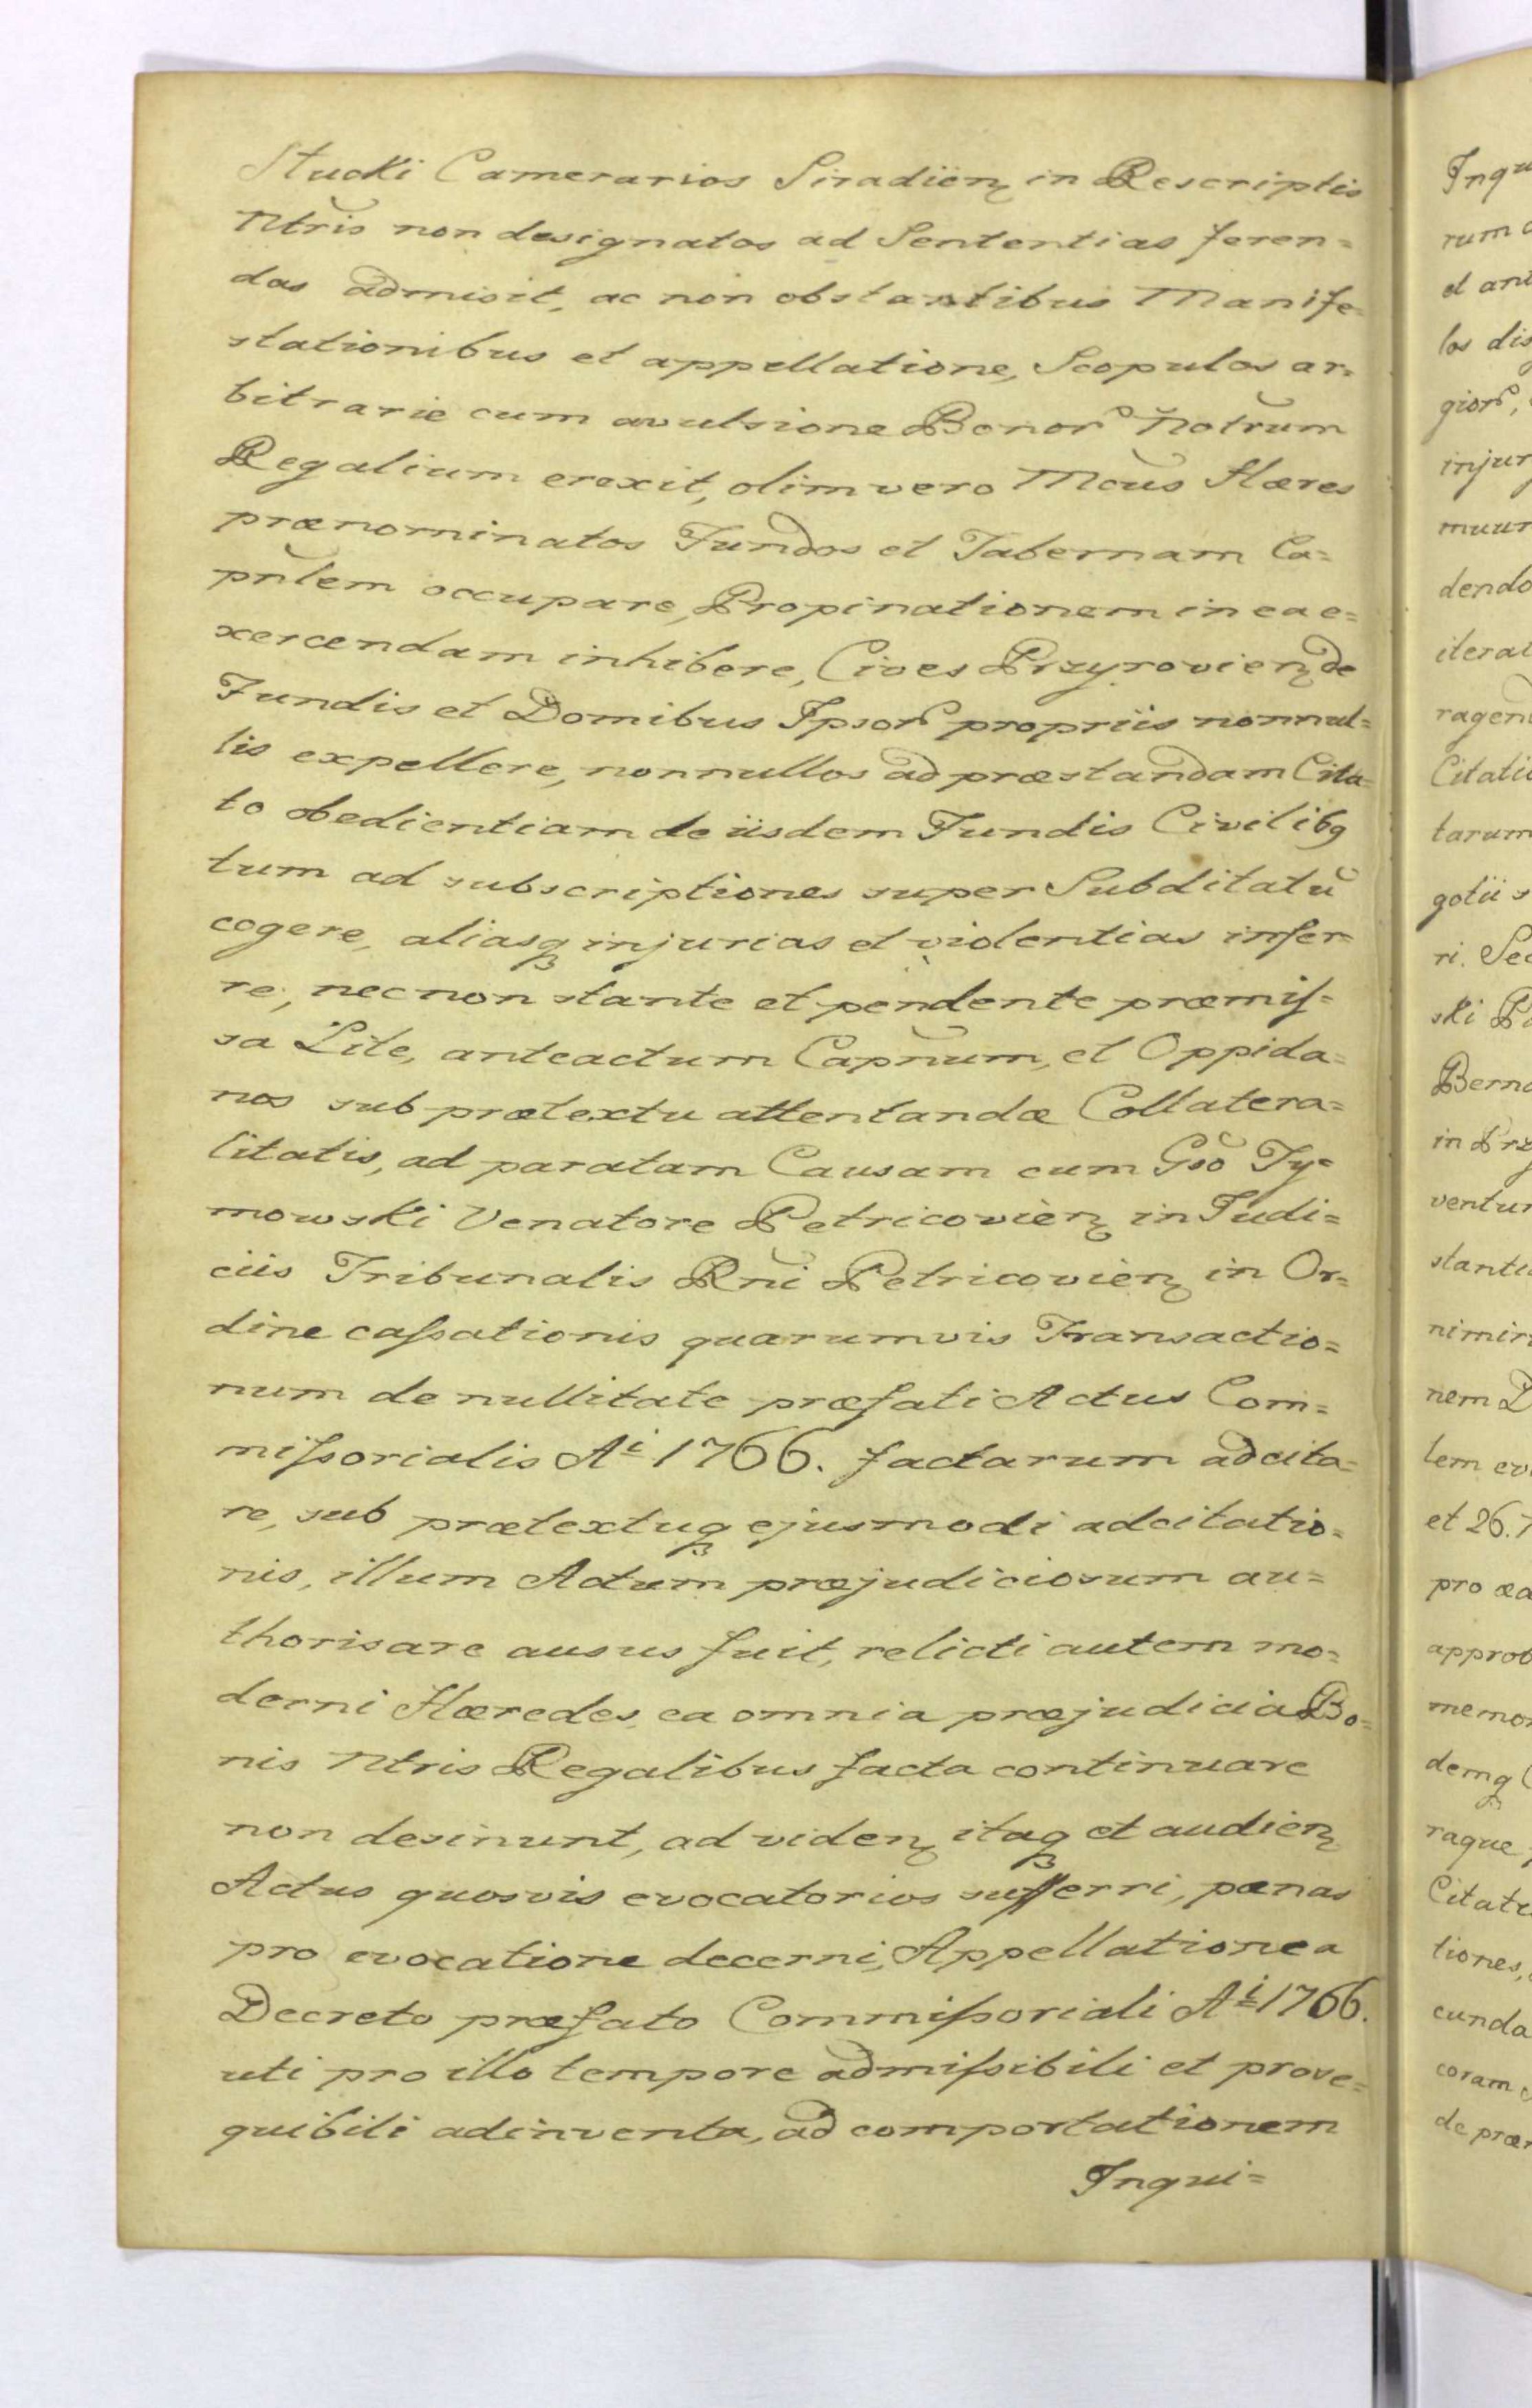 Stucki Camerarios Siradieñ in Rescriptis
Ntris non designatos ad Sententias feren=
das admisit, ac non obstantibus Manife=
stationibus et appellatione, Scopulos ar=
bitrarie cum avulsione Bonor Notrum
Regalium erexit, olim vero Mcus Hæres
prænominatos Fundos et Tabernam Ca=
pñlem occupare, Propinationem in ea e=
xercendam inhibere, Cives Przyrovieñ de
Fundis et Domibus Ipsor propriis nonnul=
lis expellere, nonnullos ad præstandam Cita=
to obedientiam de iisdem Fundis Civilibq
tum ad subscriptiones super Subditatū
cogere, aliasq injurias et violentias infer=
re, necnon stante et pendente præmiſ=
sa Lite, anteactum Capñum, et Oppida=
nos sub prætextu attentandæ Collatera=
litatis, ad paratam Causam cum Gso Ty=
mowski Venatore Petricovieñ in Judi=
ciis Tribunalis Rni Petricovieñ in Or=
dine caſsationis quarumvis Transactio=
num de nullitate præfati Actus Com=
miſsorialis Ai 1766. factarum adcita=
re, sub prætextuq ejusmodi adcitatio=
nis, illum Actum præjudiciosum au=
thorisare ausus fuit, relicti autem mo=
derni Hæredes, ea omnia præjudicia Bo=
nis Ntris Regalibus facta continuare
non desinunt, ad videñ itaq et audieñ
Actus quosvis evocatorios sufferri, pœnas
pro evocatione decerni, Appellatione a
Decreto præfato Commiſsoriali Ai 1766.
uti pro illo tempore admiſsibili et prose=
quibili adinventa, ad comportationem
Inqui=
Inqu
rum
et
los dis
gior,
injur
muur
dendo
iterat
ragen
Citatio
tarum
gotii s
ri. Sec
ski
Berna
in Prz
ventur
stante
nimir
nem
lem
et 26.
pro
approb
memor
demq
raque
Citat
tiones,
cunda
coram
de præ